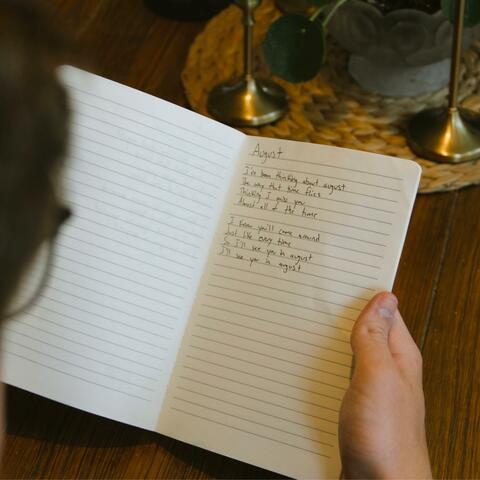 August
I've been thinking about august
The way that time flies
Thinking I miss you
Almost all of the time
I know you'll come around
Just like every time
So I'll see you in august
I'll see you in august